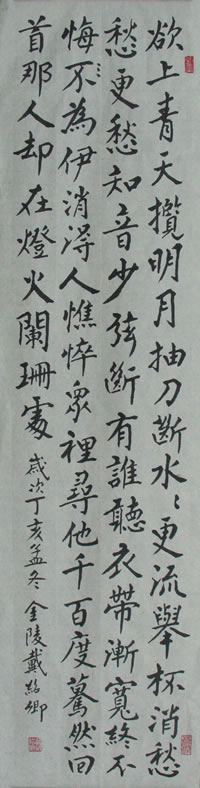 欲上青天攬明月抽刀斷水〻更流舉杯消愁
愁更愁知音少弦斷有誰聽衣帶漸寬終不
悔不為伊消得人憔悴眾裡尋他千百度驀然回
首那人却在燈火闌珊處 歲次丁亥孟冬 金陵戴紹卿